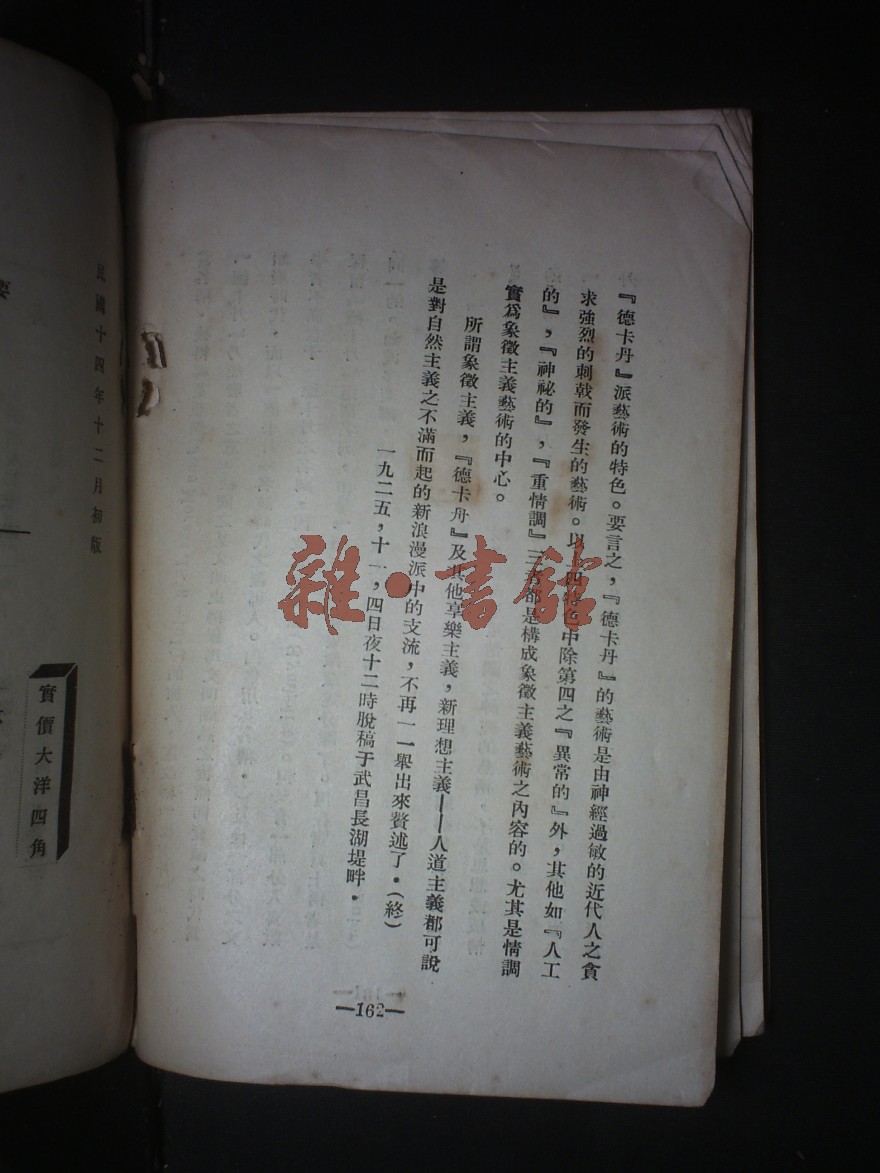 『德卡丹』派藝術的特色。要言之，『德卡丹』的藝術是由神經過敏的近代人之貪
求強烈的刺戟而發生的藝術。以上四特色中除第四之『異常的』外，其他如『人工
的』，『神祕的』，『重情調』三者都是構成象徵主義藝術之內容的。尤其是情調
實爲象徵主義藝術的中心。
所謂象徵主義，『德卡丹』及其他享樂主義，新理想主義——人道主義都可說
是對自然主義之不滿而起的新浪漫派中的支流，不再一一舉出來贅述了．（終）
一九二五，十一，四日夜十二時脫稿于武昌長湖堤畔．
—162—
民國十四年十二月初版
實價大洋四角
要
雜·書館